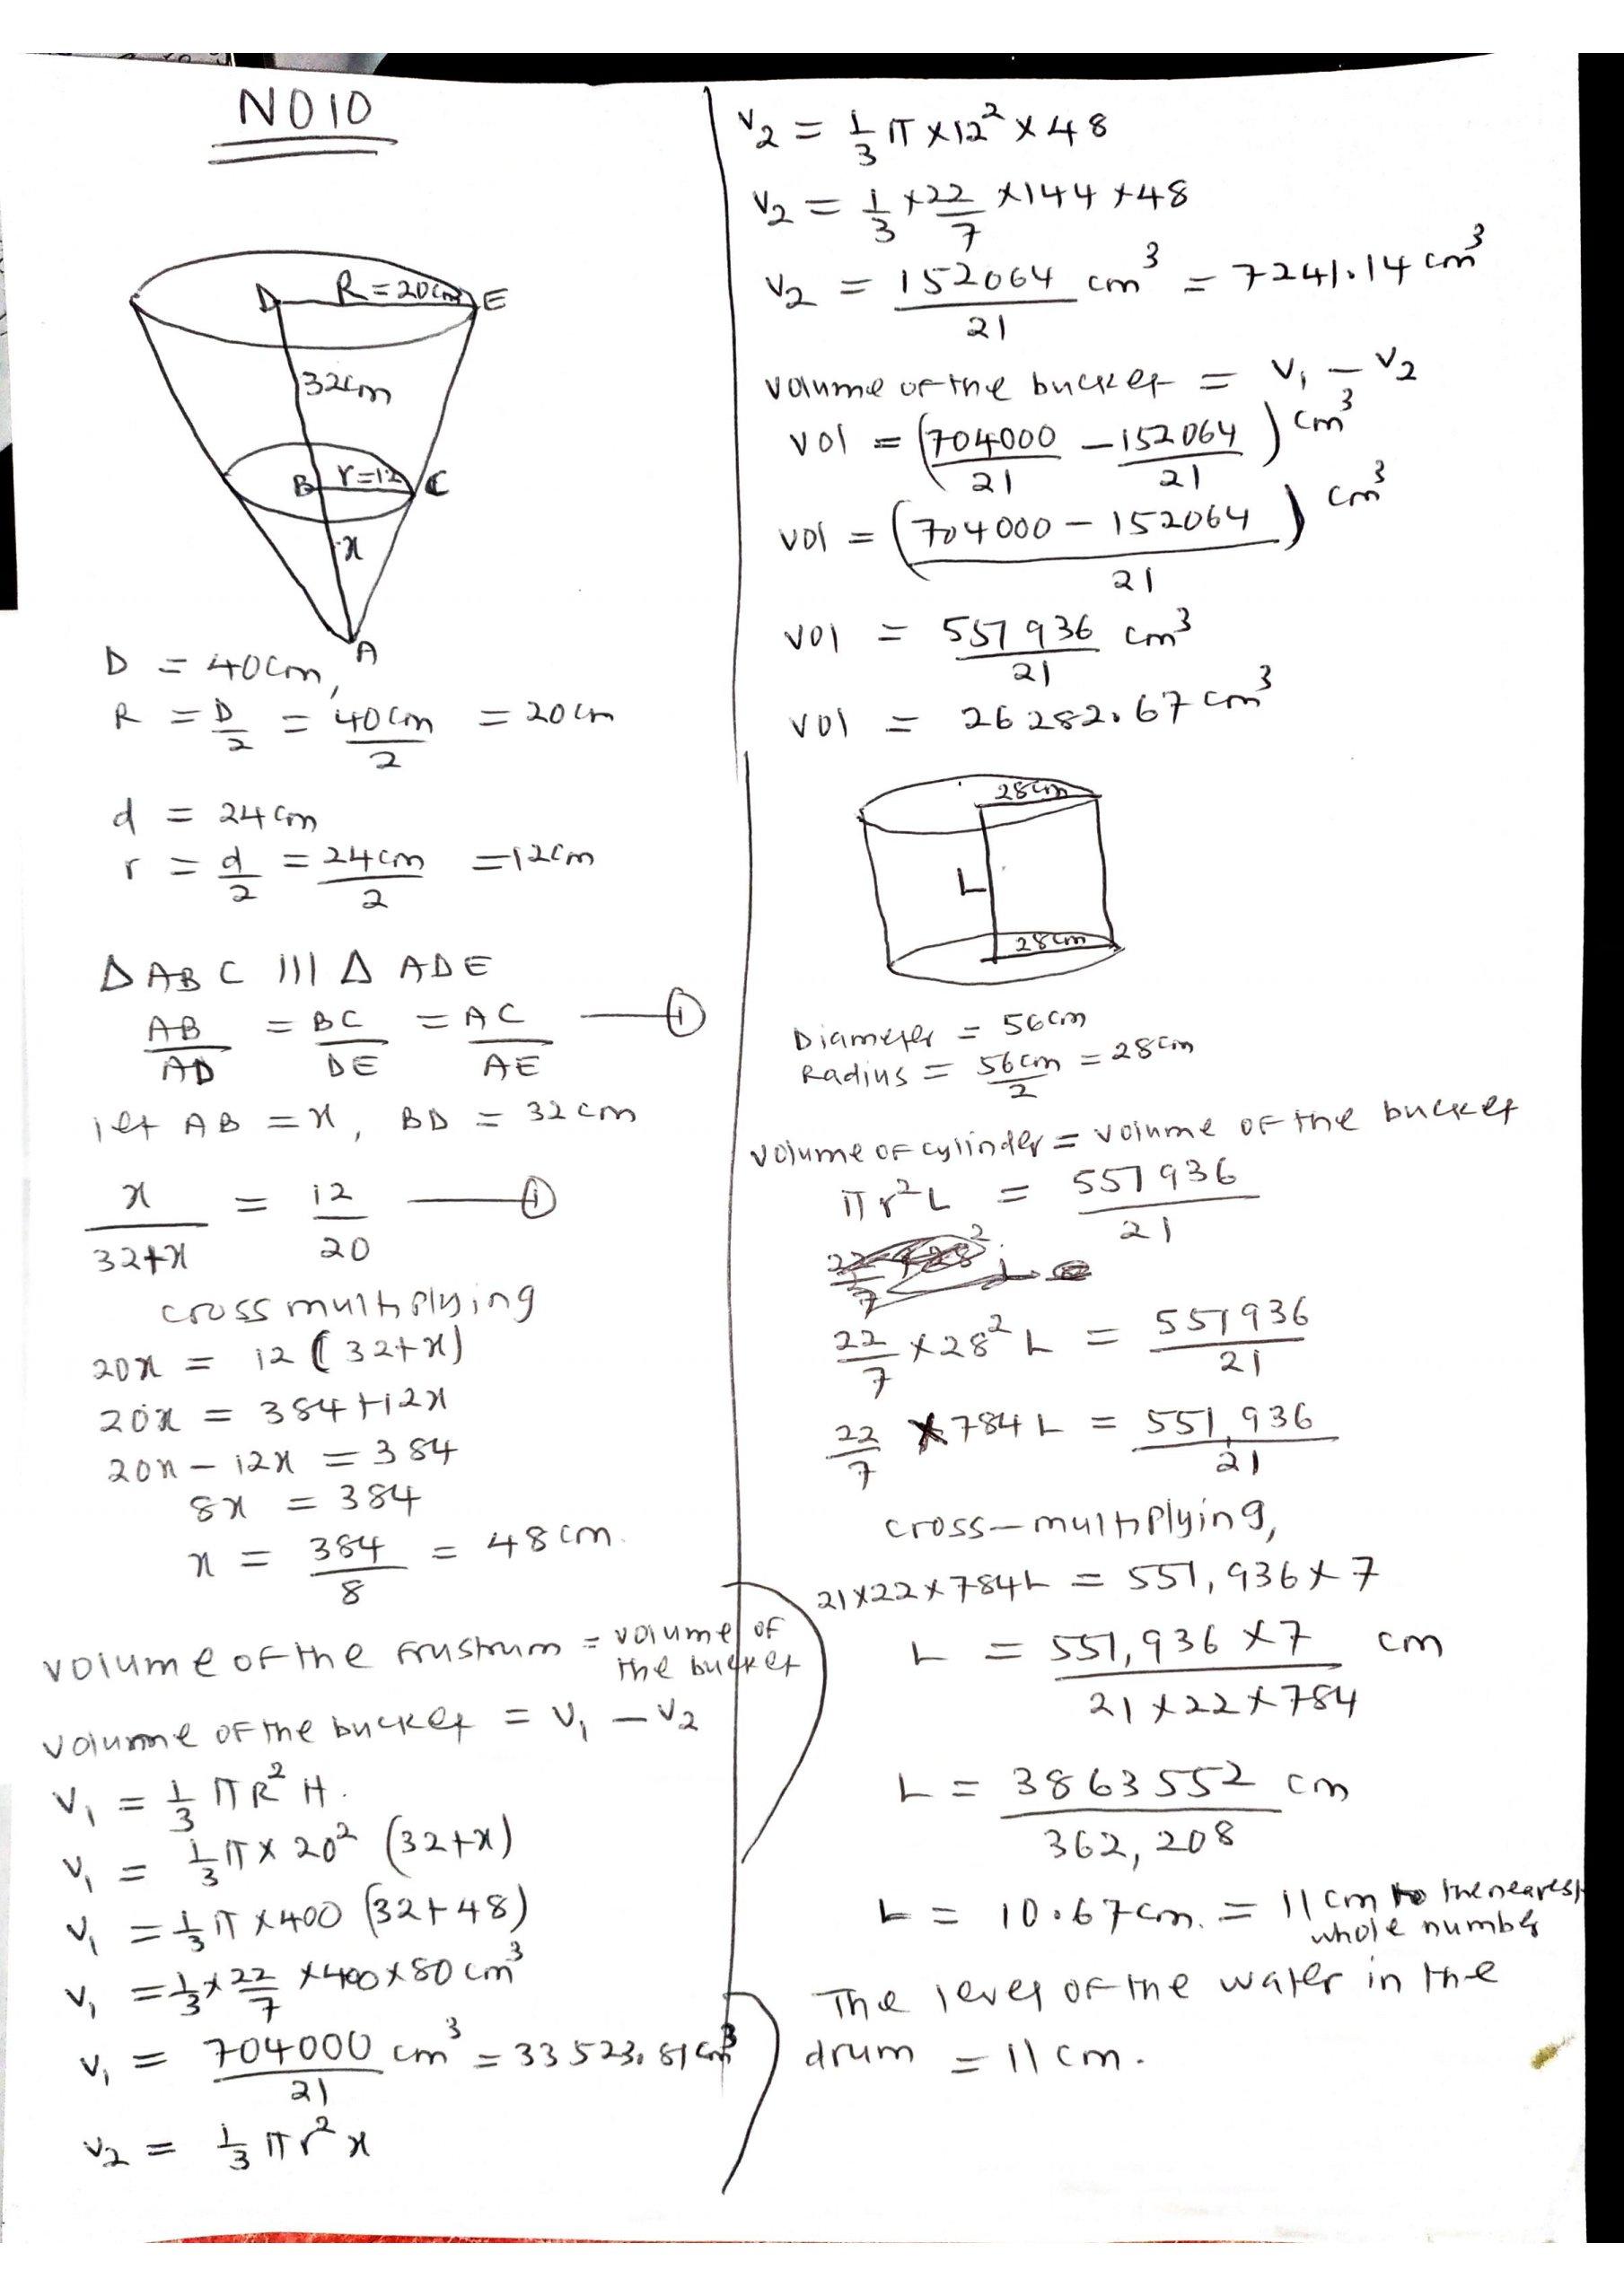 NO10
D R=20cm E
32cm
B r=12 C
x
A
D = 40cm,
R = D/2 = 40cm/2 = 20cm
d = 24cm
r = d/2 = 24cm/2 = 12cm
Δ ABC ||| Δ ADE
AB/AD = BC/DE = AC/AE —— ①
let AB = x, BD = 32cm
x/(32+x) = 12/20 —— ①
cross multiplying
20x = 12(32+x)
20x = 384+12x
20x - 12x = 384
8x = 384
x = 384/8 = 48cm.
volume of the frustrum = volume of the bucket
volume of the bucket = V₁ - V₂
V₁ = 1/3 πR²H.
V₁ = 1/3 π × 20² (32+x)
V₁ = 1/3 π × 400 (32+48)
V₁ = 1/3 × 22/7 × 400 × 80 cm³
V₁ = 704000/21 cm³ = 33523.81cm³
V₂ = 1/3 πr²x
V₂ = 1/3 π × 12² × 48
V₂ = 1/3 × 22/7 × 144 × 48
V₂ = 152064/21 cm³ = 7241.14 cm³
volume of the bucket = V₁ - V₂
vol = (704000/21 - 152064/21) cm³
vol = (704000 - 152064)/21 cm³
vol = 551936/21 cm³
vol = 26282.67 cm³
28cm
L
28cm
Diameter = 56cm
Radius = 56cm/2 = 28cm
volume of cylinder = volume of the bucket
πr²L = 551936/21
22/7 × 28² L = 551936/21
22/7 × 784 L = 551,936/21
cross-multiplying,
21×22×784L = 551,936 × 7
L = (551,936 × 7)/(21 × 22 × 784) cm
L = 3863552/362,208 cm
L = 10.67cm. = 11cm to the nearest whole number
The level of the water in the
drum = 11cm.